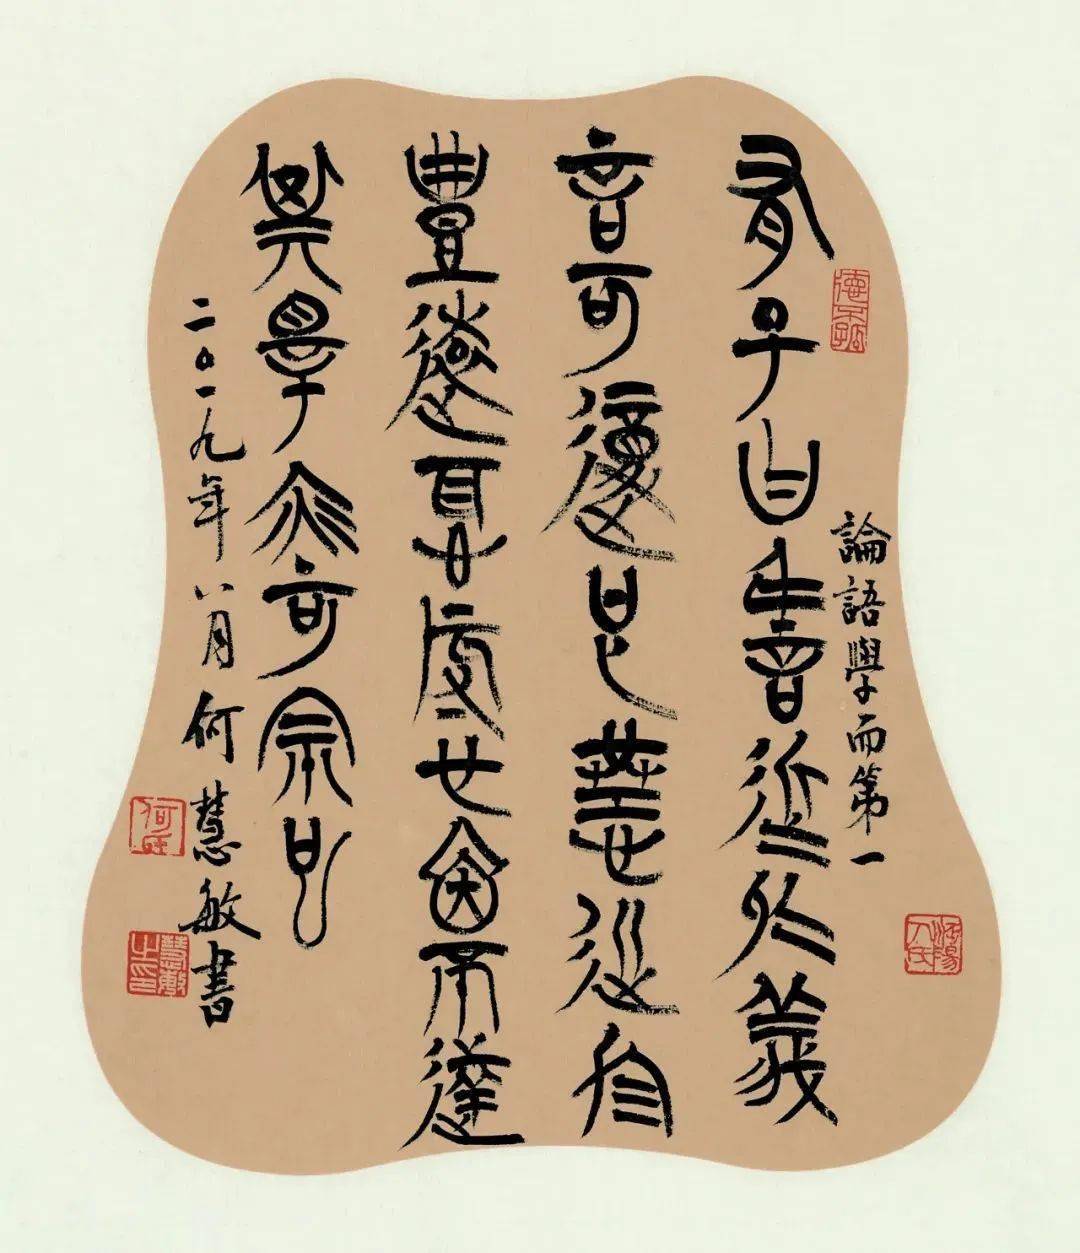 有子曰信近於義
言可復也恭近於
禮遠恥辱也因不失
其親亦可宗也
論語學而第一
二〇一九年八月何慧敏書
德不孤
何氏
慧敏之印